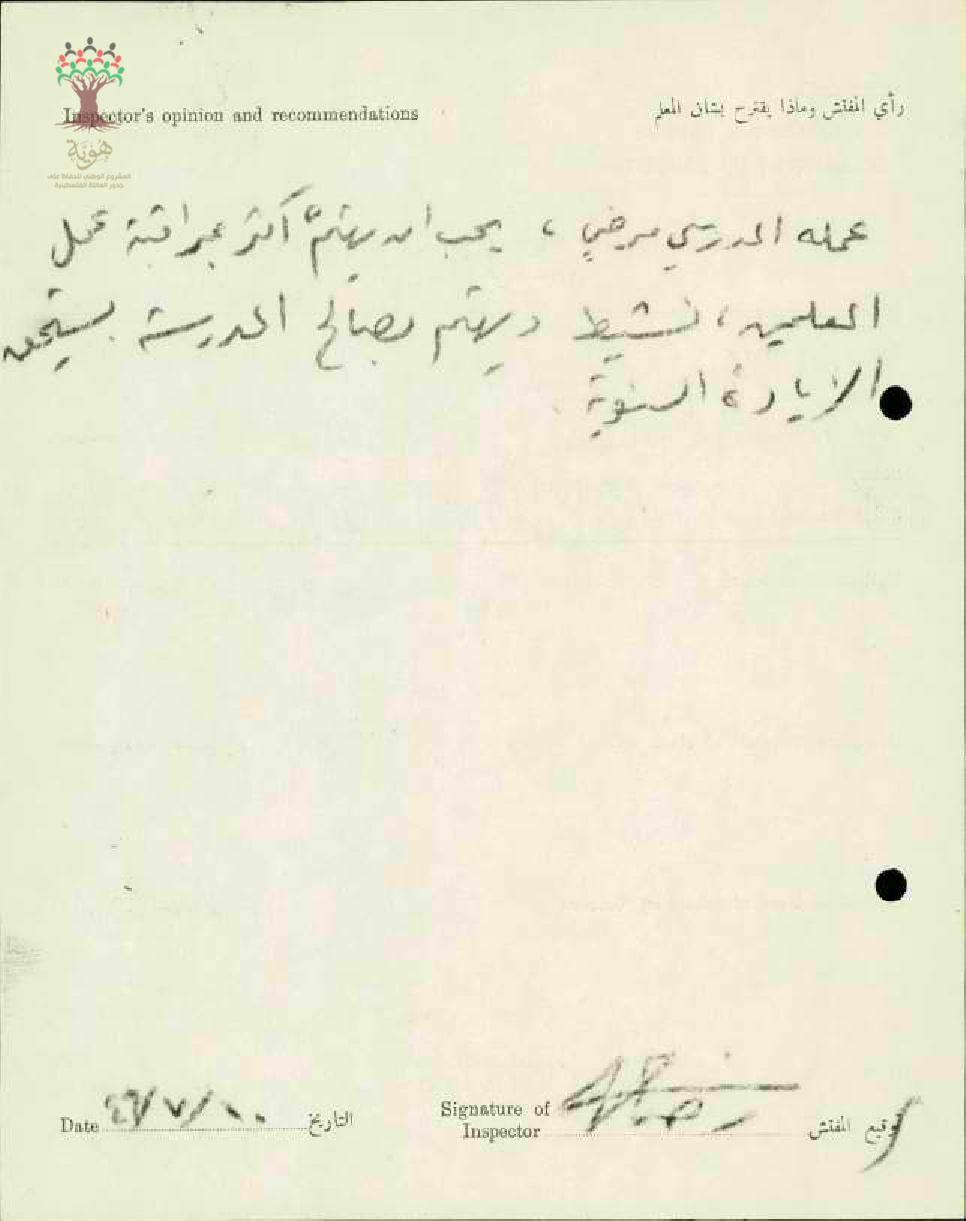 Inspector's opinion and recommendations
رأي المفتش وماذا يقترح بشان المعلم
هُويّة
المشروع الوطني للحفاظ على
جذور العائلة الفلسطينية
عمله المدرسي مرضي ، يجب ان يهتمّ أكثر بمراقبة عمل
المعلمين ، نشيط ويهتم بصالح المدرسة يستحق
الزيادة السنوية
Date
التاريخ
Signature of
Inspector
توقيع المفتش